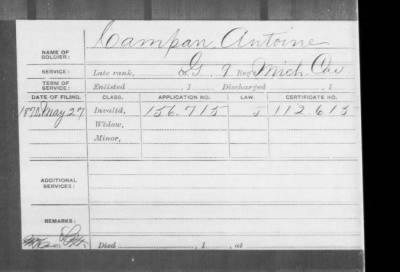 NAME OF SOLDIER: Campan, Antoine
SERVICE: Late rank, Co. G, 9 Reg't Mich Cav
TERM OF SERVICE: Enlisted , 1 Discharged , 1
DATE OF FILING. CLASS. APPLICATION NO. LAW. CERTIFICATE NO.
May 27 Invalid, 156.715 112.613
Widow,
Minor,
ADDITIONAL SERVICES:
REMARKS:
Died , 1 , at